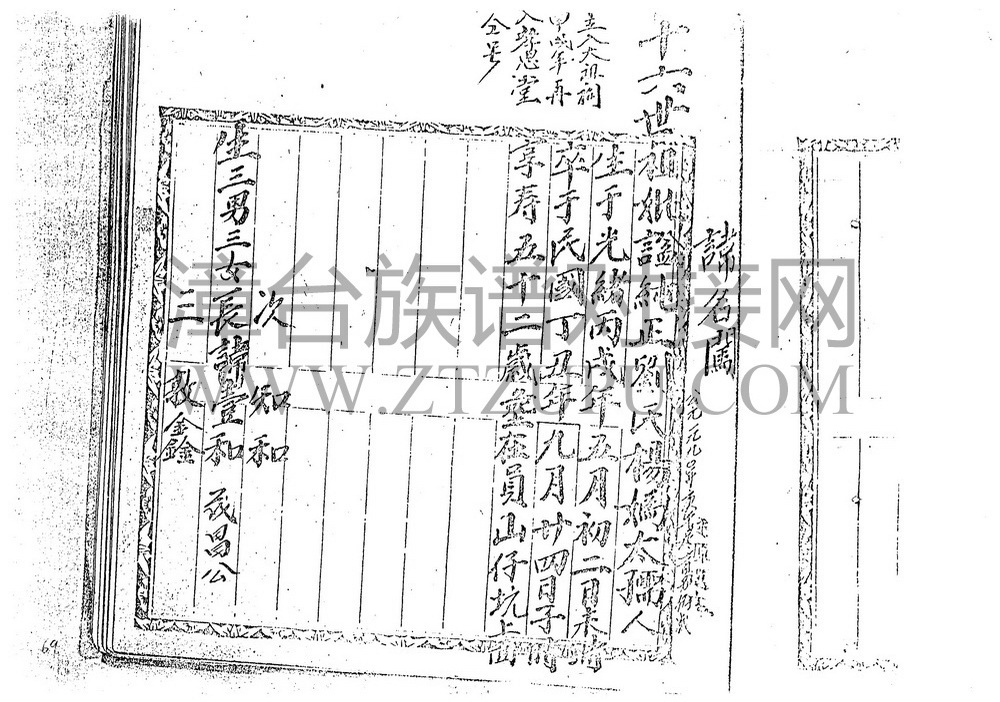 諱名鴈
十六世祖妣謚純正劉氏楊媽太孺人
生于光緒丙戌年五月初二日未時
卒于民國丁丑年九月廿四日子時
享寿五十二歲塟在員山仔坑上面
主入大祖祠
甲戌年再
入孝思堂
仝券
次 知和
生三男三女長諱壹和 茂昌公
三 敦鑫
69
漳台族谱对接网
WWW.ZTZUPU.COM